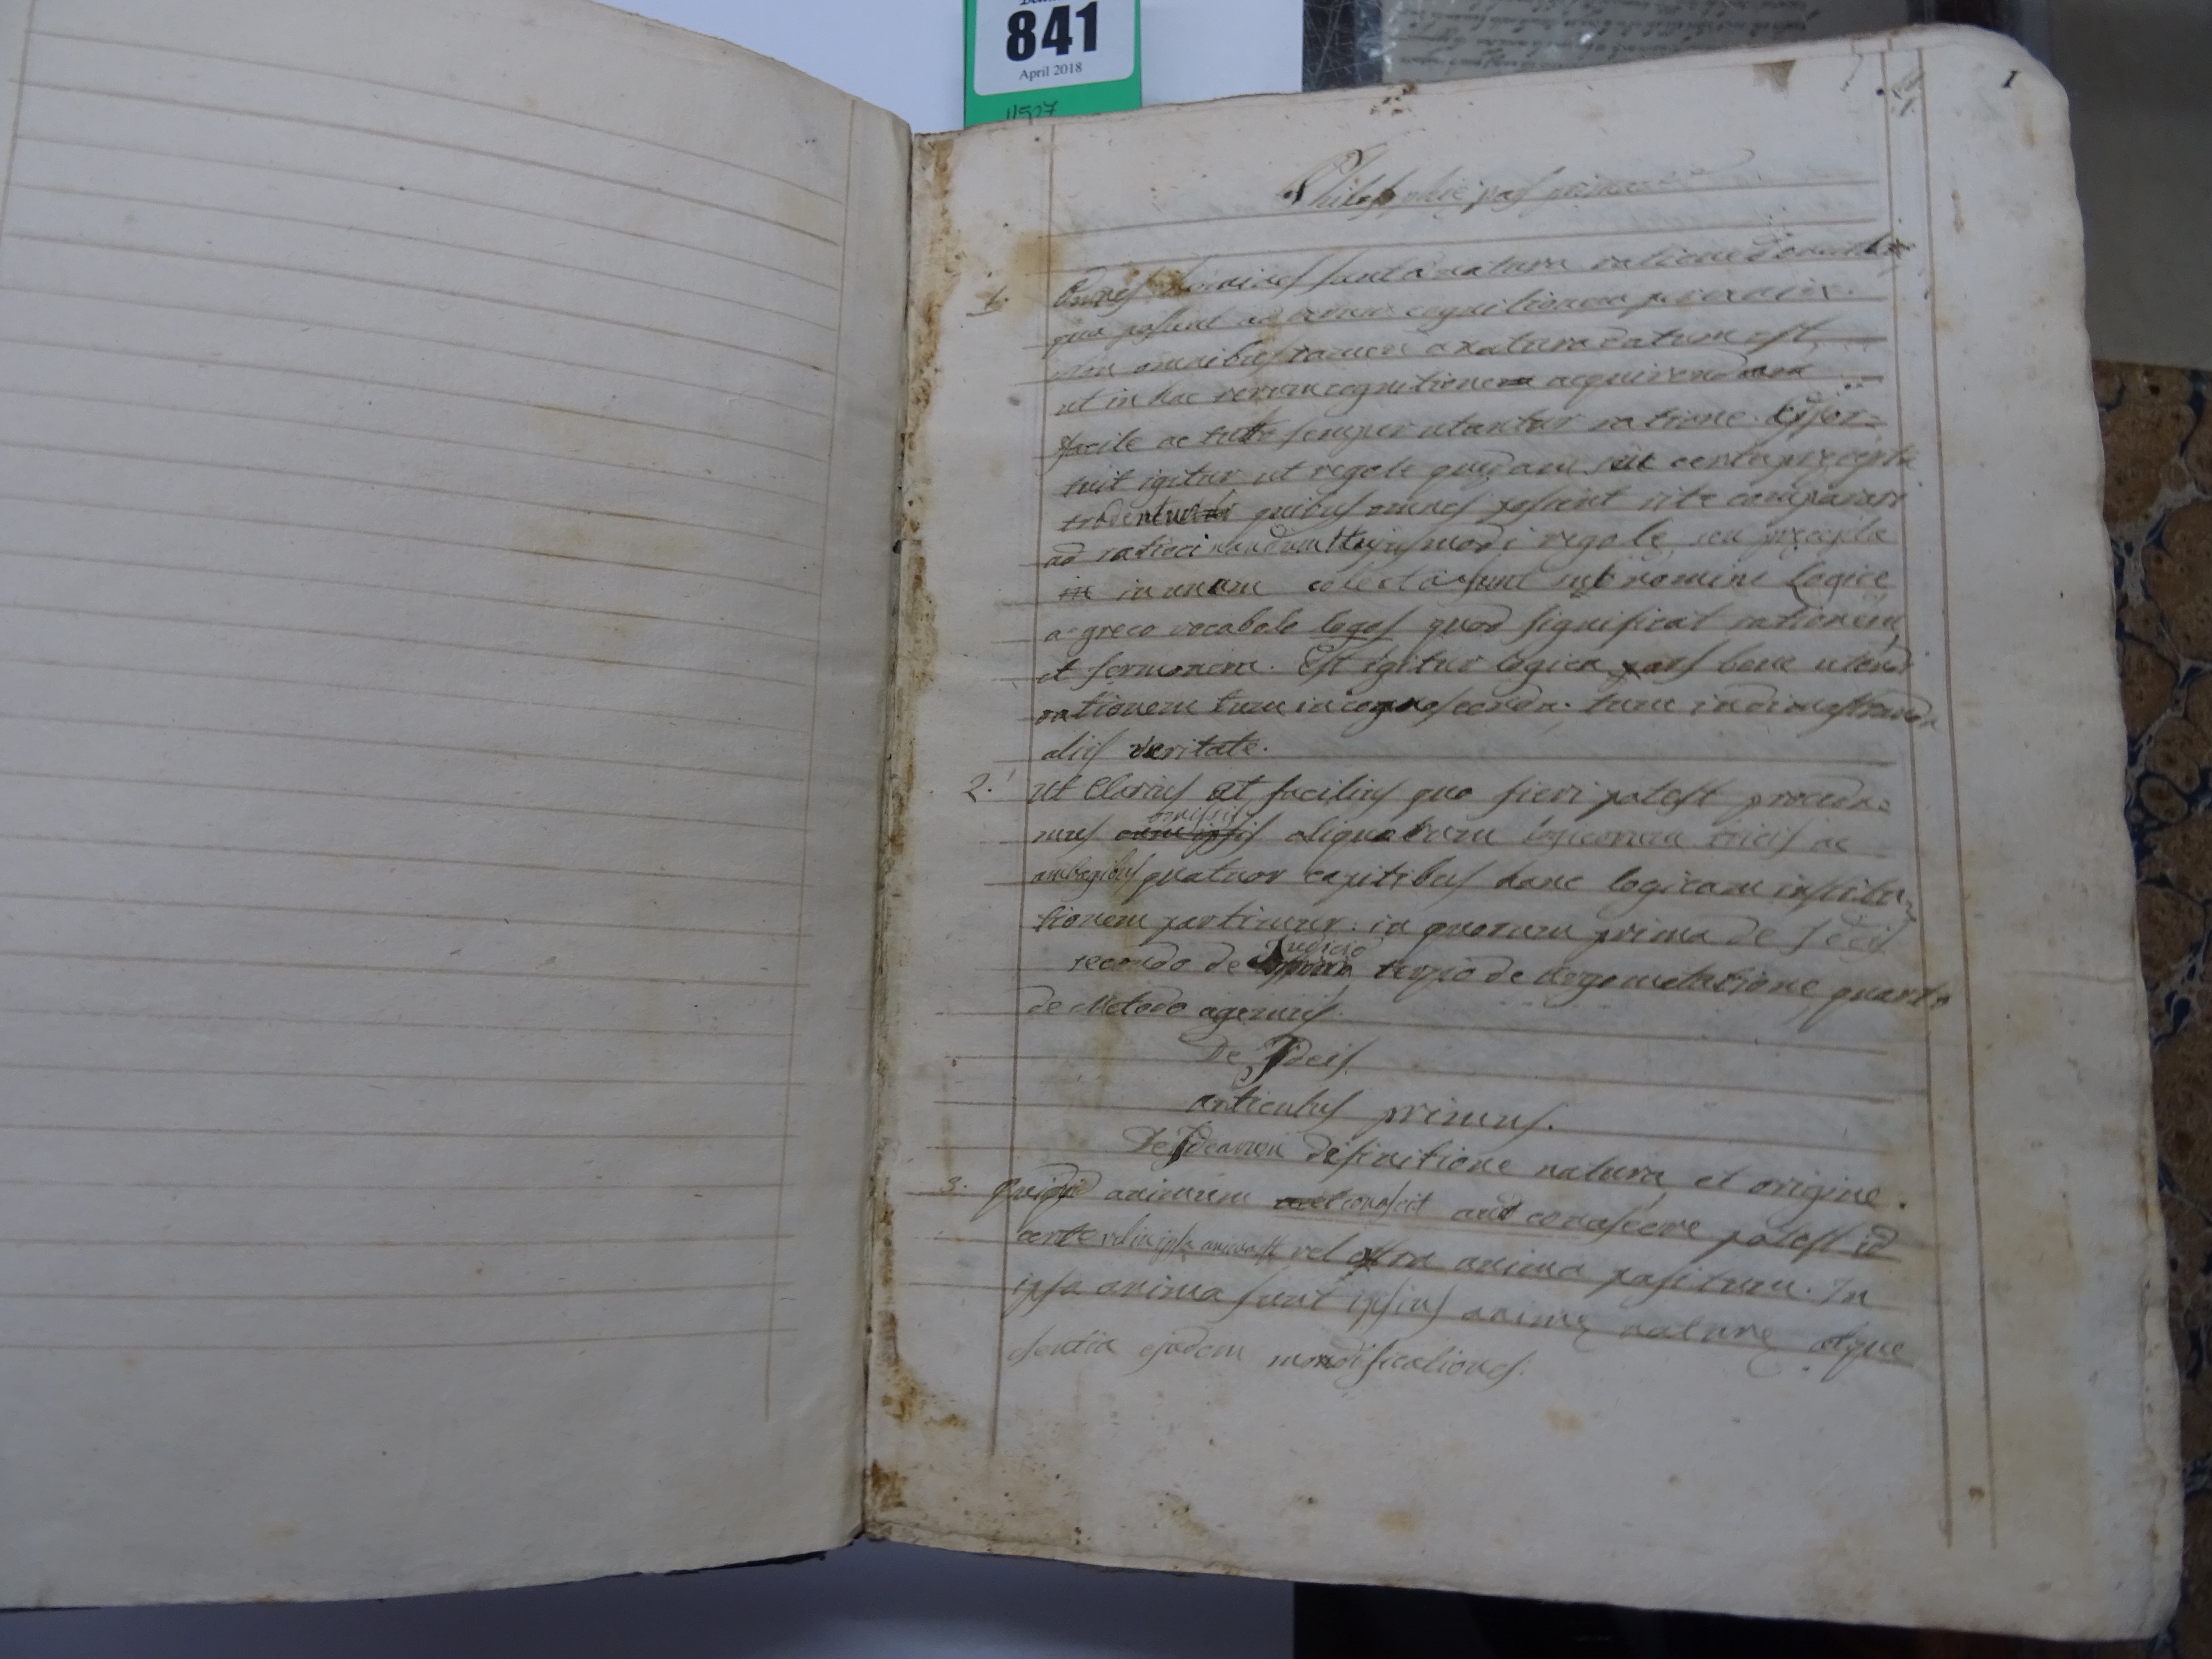 841
April 2018
11527
1
Philosophie pars prima
1. Omnes homines sunt a natura ratione donati
qua possunt ad rerum cognitionem pervenire.
Non omnibus tamen a natura datum est
ut in hac rerum cognitione acquirenda
facile ac tutte semper utantur ratione. Opor=
tuit igitur ut regole quedam seu certa precepta
traderentur quibus omnes possent rite comparari
ad ratiocinandum Hujusmodi regole, seu precepta
in in unum colecta sunt sub nomine Logice
a greco vocabolo logos quod significat rationem,
et sermonem. Est igitur logica pars bene utendi
rationem tum in cognoscenda. tum in dimostranda
aliis veritate.
2. Ut Clarius et facilius quo fieri potest proceda=
mus aliquorum logicorum tricis ac
ambagibus quatuor capitibus hanc logicam institu=
tionem partimur: in quorum primo de Ideis
secondo de Judicio terzio de Argometatione, quarto
de Metodo agemus.
De Ideis.
articulus primus.
De Idearum definitione natura, et origine.
3. Quidquid animum conoscit aut conoscere potest id
certe vel in ipsa anima est vel extra anima positum. In
ipsa anima sunt ipsius anime nature atque
esentia ejudem modificationes.